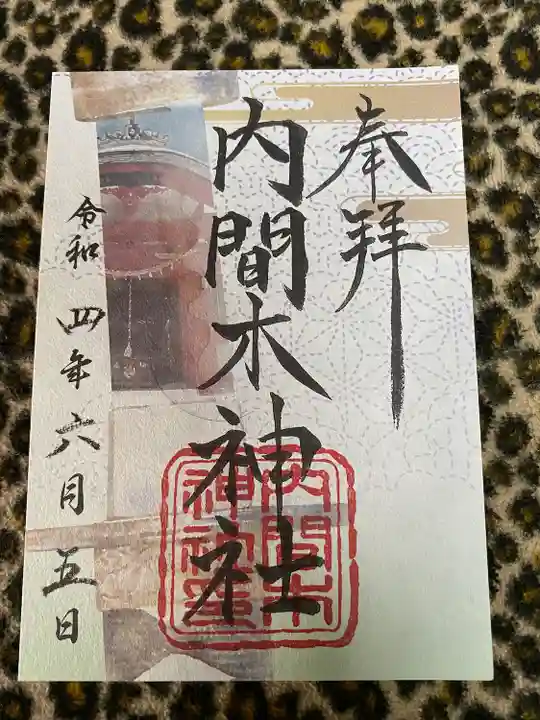 奉拝
内間木神社
内間木神社璽
令和四年六月五日